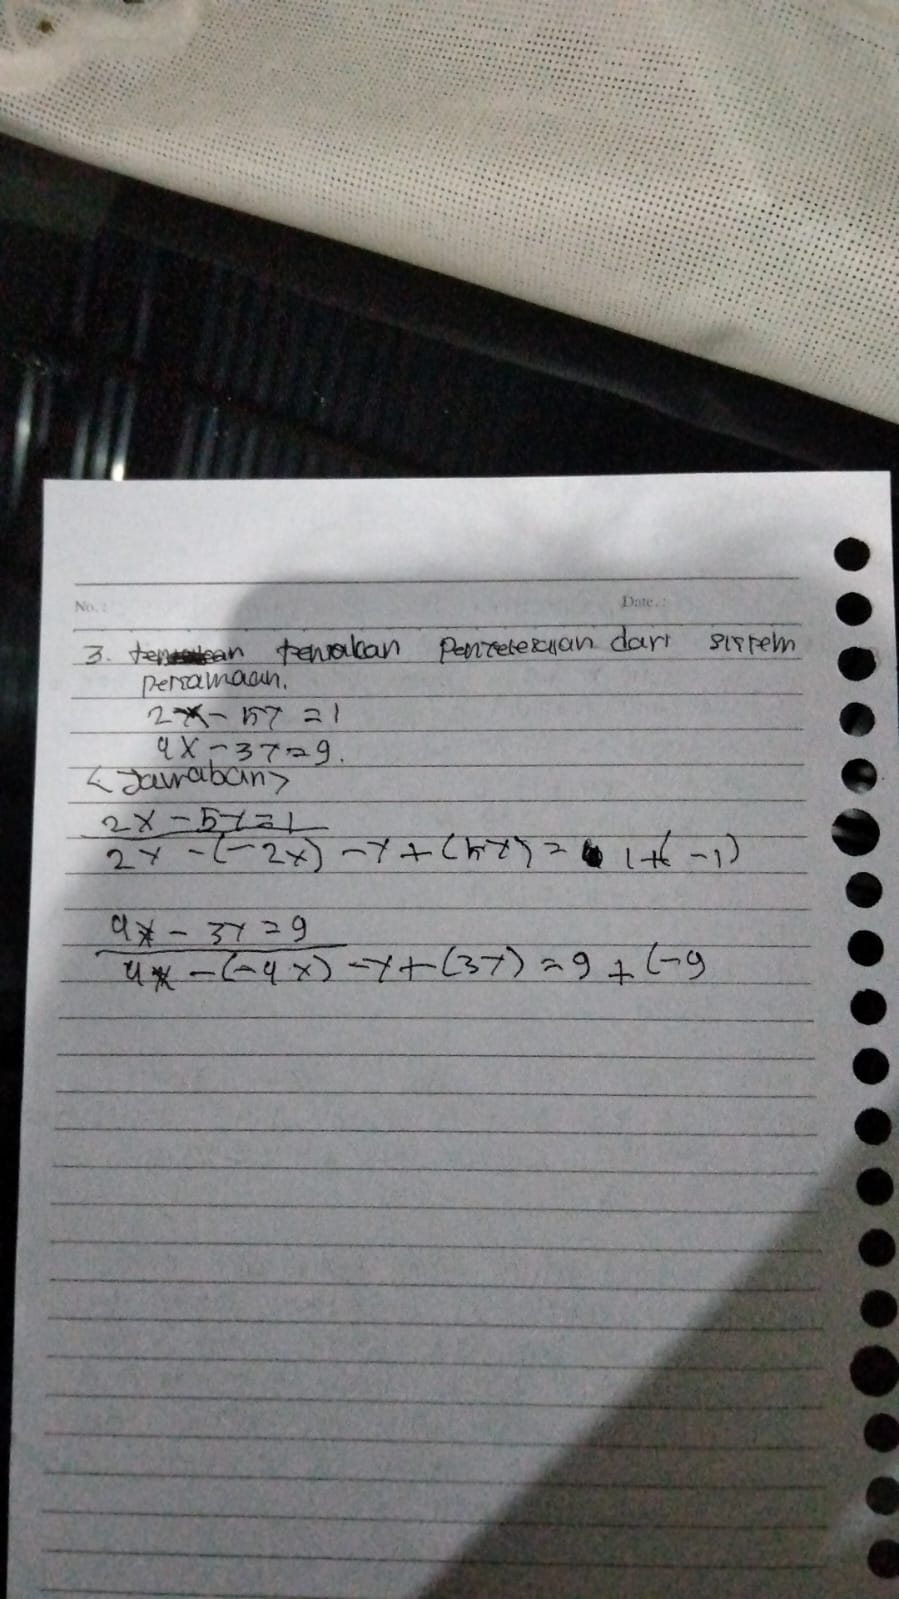 No.:
Date.:
3. tentukan Penyelesaian dari sistem
persamaan.
2x - 5y = 1
4x - 3y = 9.
<Jawaban>
2x - 5y = 1
2x - (-2x) - y + (5y) = 1 + (-1)
4x - 3y = 9
4x - (-4x) - y + (3y) = 9 + (-9